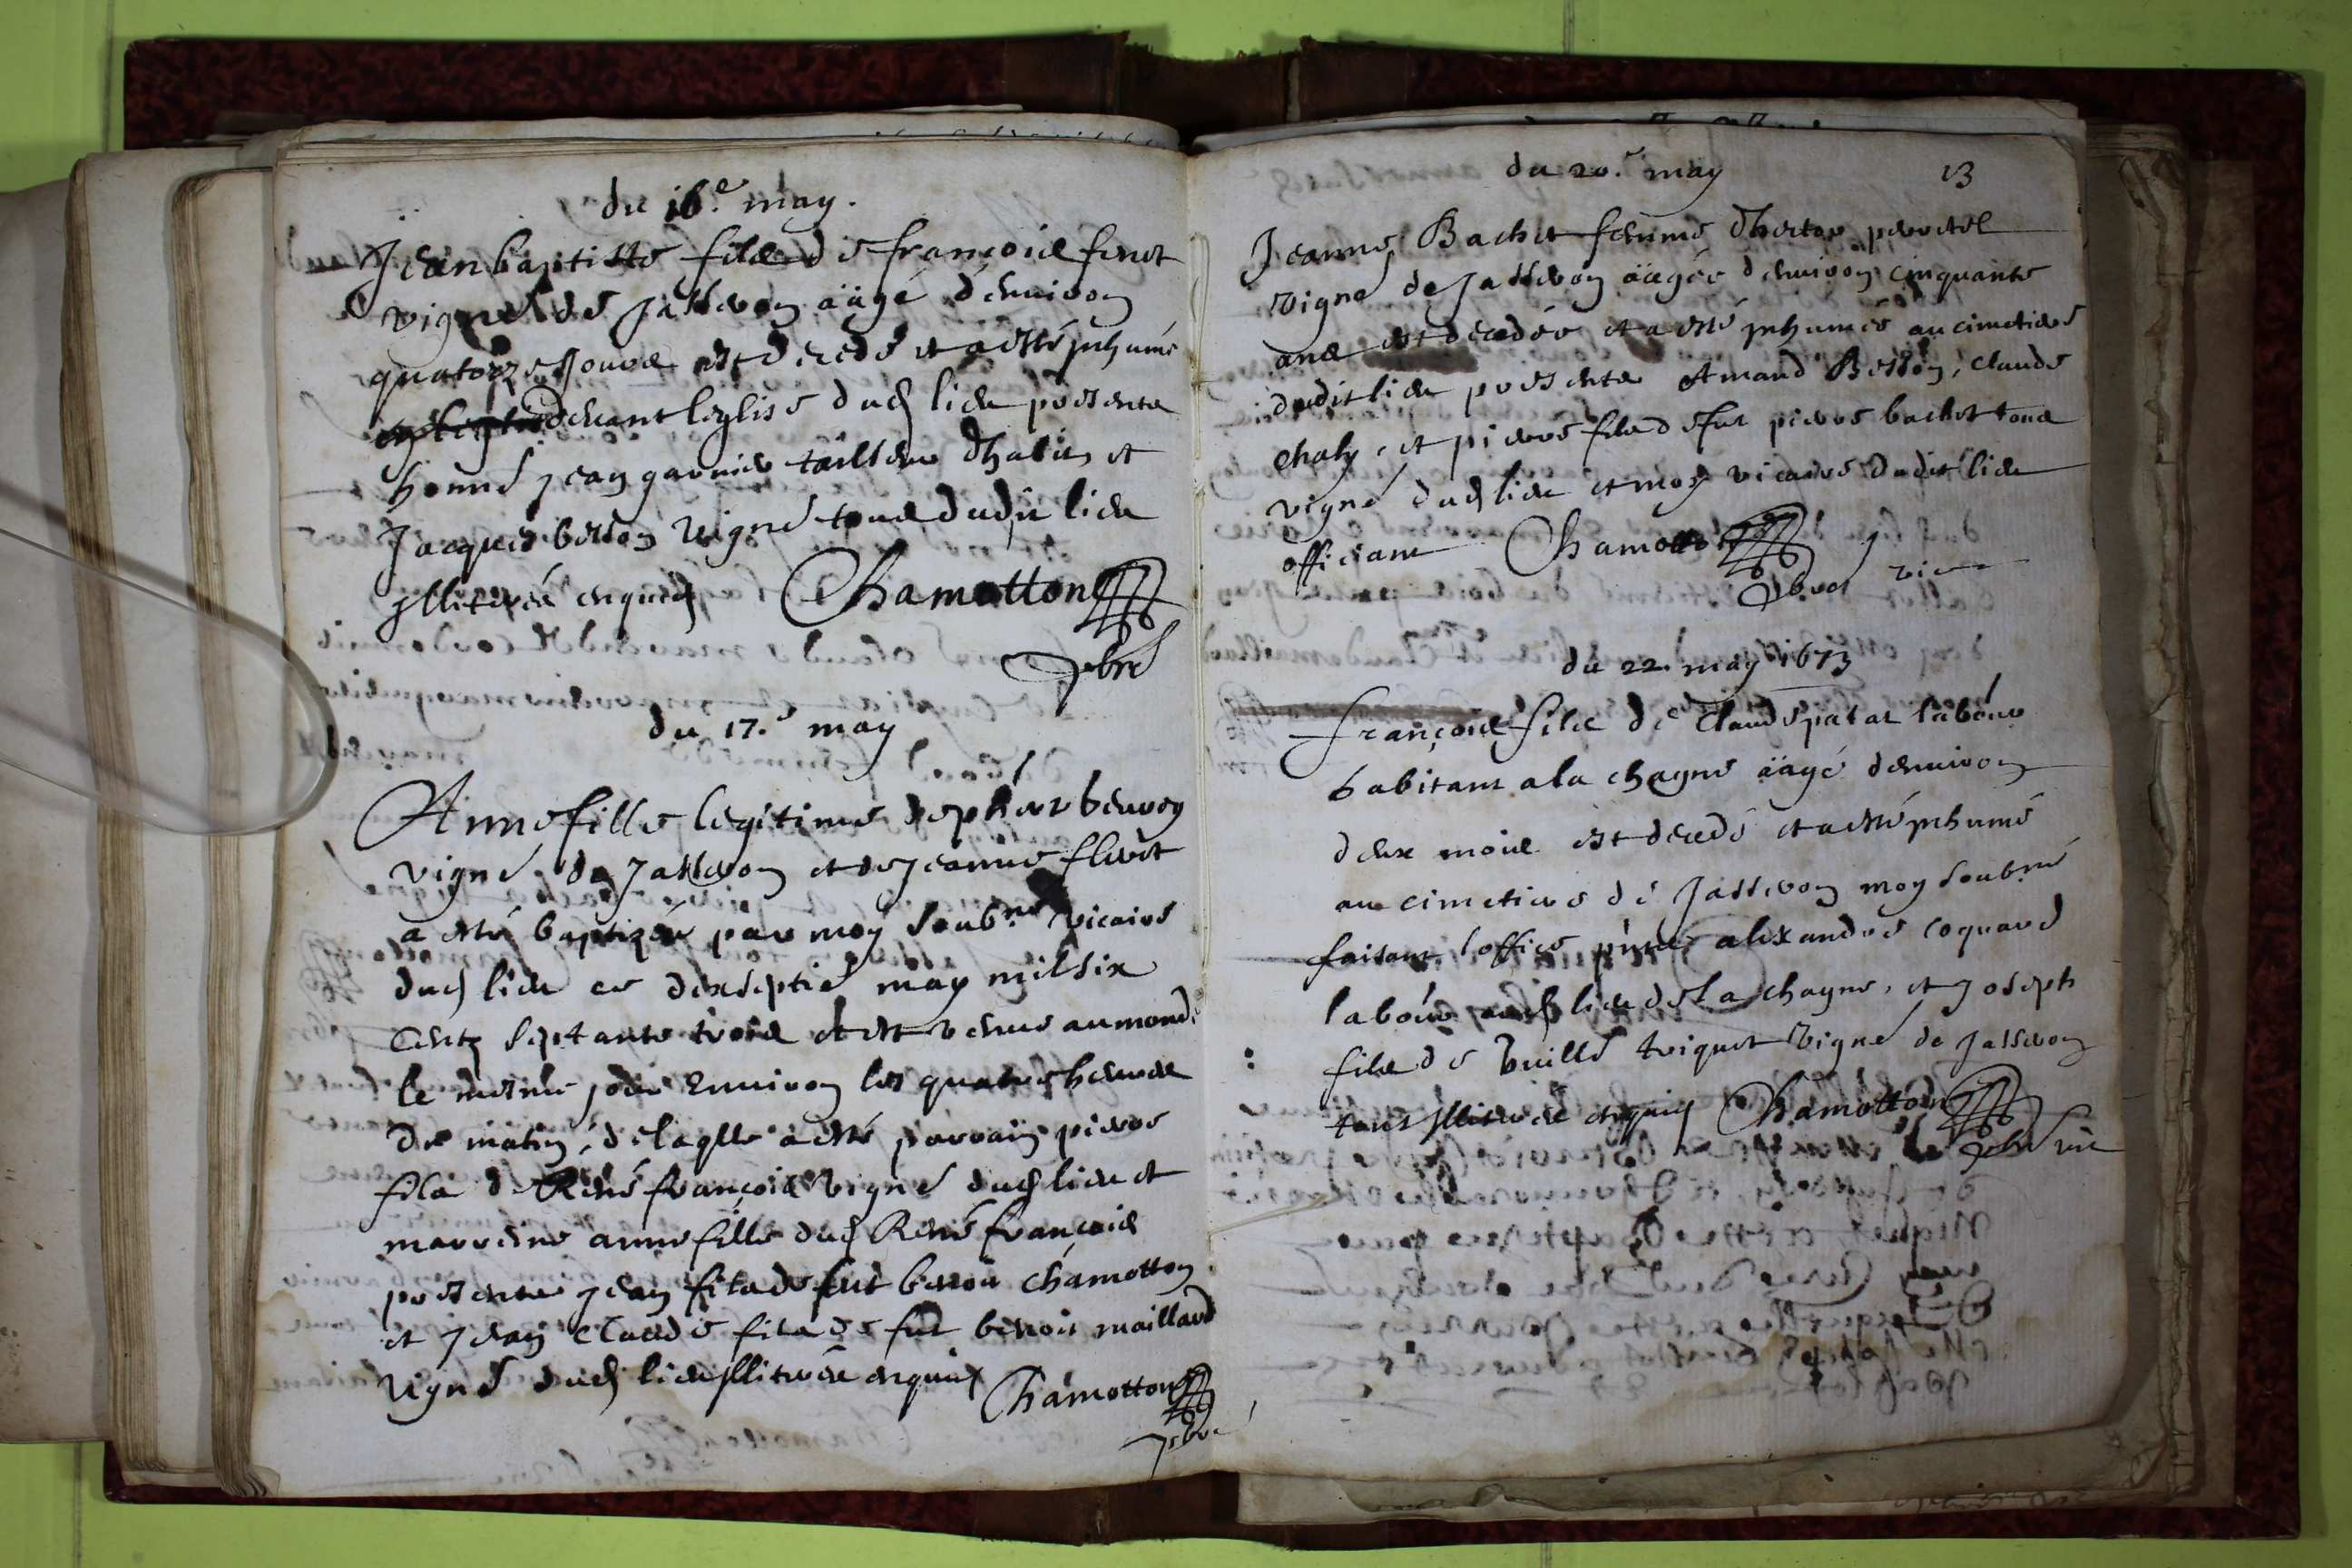 du 16.e may.
Jean baptiste filz de françois finot
vigne. de Jasseron aägé d'environ
quatorze Jours est decedé et a esté inhumé
devant leglise dud lieu presentz
honne Jean garnier tailleur dhabitz et
Jacques betton vigne tous dudit lieu
illiterés enquis Chamotton
pbre
du 17.e may
Anne fille legitime de
vigne. de Jasseron et de Jeanne
a esté baptizée par moy soubne vicaire
dud lieu ce dixseptie may mil six
centz septante trois et est venue au monde
le mesme jour environ les quatre heures
du matin, de laqlle a esté parrain pierre
filz de René françois vigne dud lieu et
marreine anne fille dud René françois
presentz Jean filz de fut benoit chamotton
et Jean Claude filz de fut benoit maillard
vigne dud lieu illiterés enquis Chamotton
pbre
du 20.e may 13
Jeanne Bachet femme dhector
vigne de Jasseron aägée d'environ cinquante
ans est decedée et a esté inhumée au cimetiere
dudit lieu presentz Amand Betton, Claude
chaly, et pierre filz de fut pierre bachet tous
vigne dud lieu et moy vicaire dudit lieu
officiant Chamotton
pbre vice
du 22. may 1673
françois filz de Claude patat labour
habitant a la chagne aägé d'environ
deux mois est decedé et a esté inhumé
au cimetiere de Jasseron moy soubne
faisant l'office pntz alexandre coquard
labour aud lieu de La chagne, et Joseph
filz de vuille triquet vigne de Jasseron
tous illiterés enquis Chamotton
pbre vic